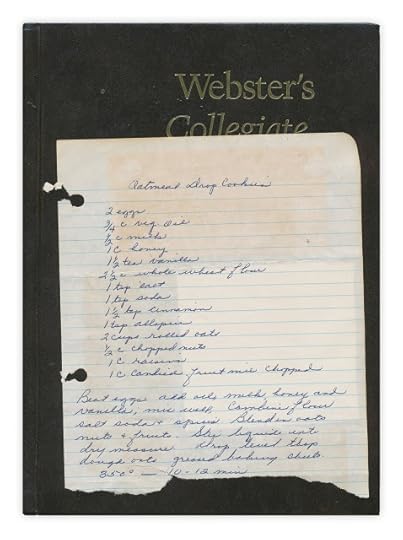 Webster's
Collegiate
Oatmeal Drop Cookies
2 eggs
3/4 c veg. oil
1/2 c milk
1 C honey
1 1/2 tea vanilla
2 1/2 c whole wheat flour
1 tsp salt
1 tsp soda
1 1/2 tsp cinnamon
1 tsp allspice
2 cups rolled oats
1/2 c chopped nuts
1 C raisins
1 C candied fruit mix chopped
Beat eggs add oil, milk, honey and
vanilla, mix well. Combine flour
salt soda & spices. Blend in oats
nuts & fruits. liquids into
dry mixture. Drop level tbsp
dough onto greased baking sheets.
350° — 10-12 min